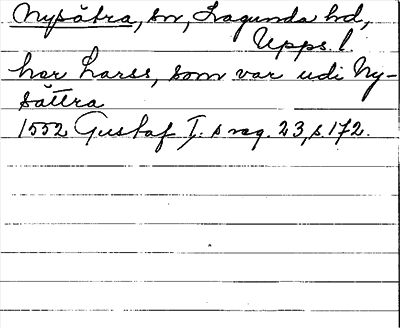 Nysätra, sn, Lagunda hd,
Upps. l.
har Larss, som var udi Ny-
sättra
1552 Gustaf I:s reg. 23, s 172.